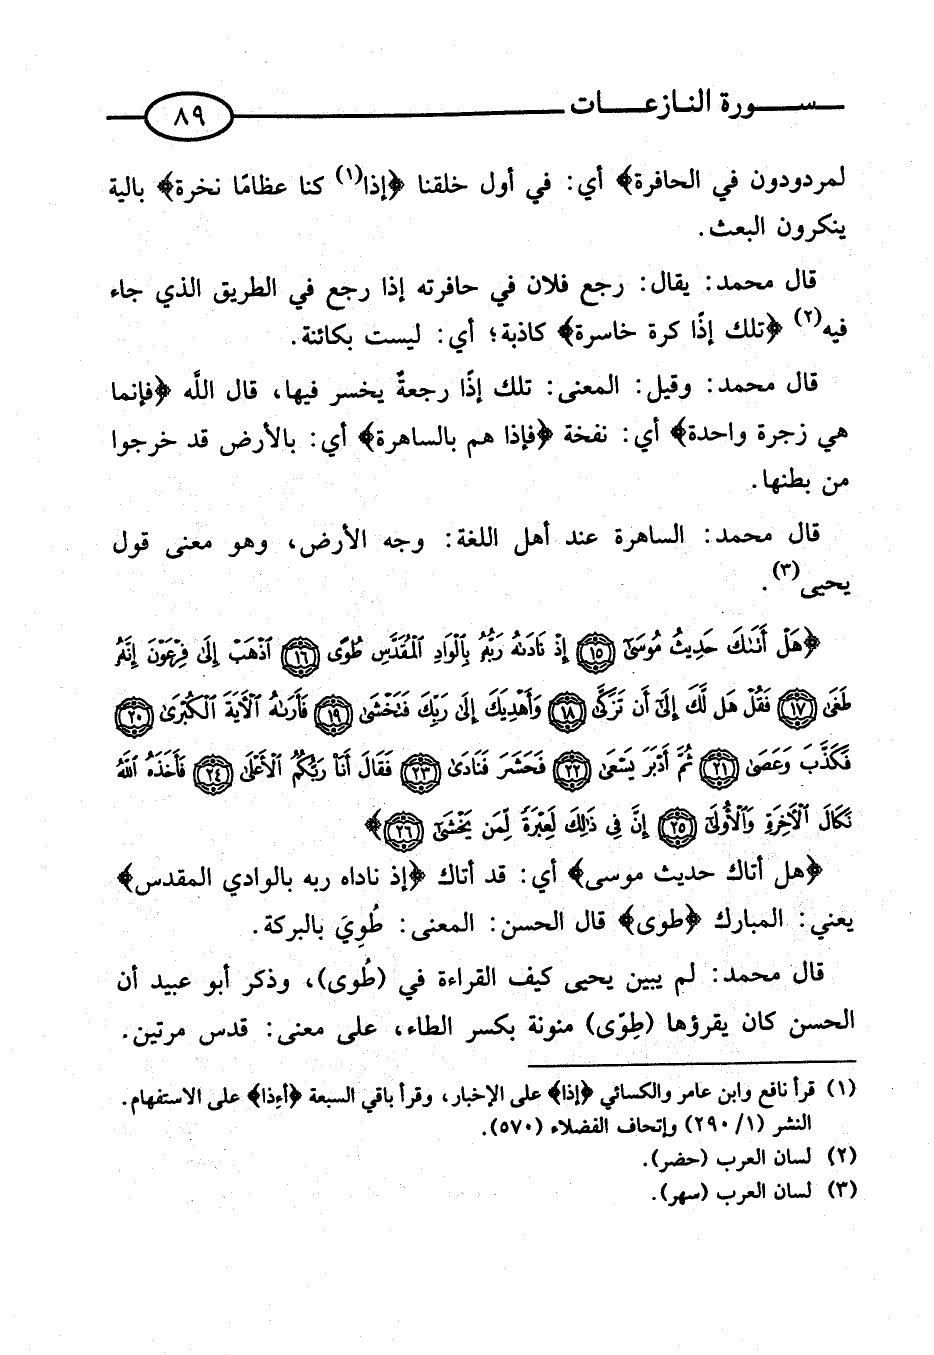 سورة النازعات ٨٩
لمردودون في الحافرة﴾ أي: في أول خلقنا ﴿إذا(١) كنا عظامًا نخرة﴾ بالية
ينكرون البعث.
قال محمد: يقال: رجع فلان في حافرته إذا رجع في الطريق الذي جاء
فيه(٢) ﴿تلك إذًا كرة خاسرة﴾ كاذبة؛ أي: ليست بكائنة.
قال محمد: وقيل: المعنى: تلك إذًا رجعةٌ يخسر فيها، قال اللَّه ﴿فإنما
هي زجرة واحدة﴾ أي: نفخة ﴿فإذا هم بالساهرة﴾ أي: بالأرض قد خرجوا
من بطنها.
قال محمد: الساهرة عند أهل اللغة: وجه الأرض، وهو معنى قول
يحيى(٣).
﴿هَلْ أَتَىٰكَ حَدِيثُ مُوسَىٰٓ ١٥ إِذْ نَادَىٰهُ رَبُّهُۥ بِٱلْوَادِ ٱلْمُقَدَّسِ طُوًى ١٦ ٱذْهَبْ إِلَىٰ فِرْعَوْنَ إِنَّهُۥ
طَغَىٰ ١٧ فَقُلْ هَل لَّكَ إِلَىٰٓ أَن تَزَكَّىٰ ١٨ وَأَهْدِيَكَ إِلَىٰ رَبِّكَ فَتَخْشَىٰ ١٩ فَأَرَىٰهُ ٱلْءَايَةَ ٱلْكُبْرَىٰ ٢٠
فَكَذَّبَ وَعَصَىٰ ٢١ ثُمَّ أَدْبَرَ يَسْعَىٰ ٢٢ فَحَشَرَ فَنَادَىٰ ٢٣ فَقَالَ أَنَا۠ رَبُّكُمُ ٱلْأَعْلَىٰ ٢٤ فَأَخَذَهُ ٱللَّهُ
نَكَالَ ٱلْءَاخِرَةِ وَٱلْأُولَىٰٓ ٢٥ إِنَّ فِى ذَٰلِكَ لَعِبْرَةً لِّمَن يَخْشَىٰٓ ٢٦﴾
﴿هل أتاك حديث موسى﴾ أي: قد أتاك ﴿إذ ناداه ربه بالوادي المقدس﴾
يعني: المبارك ﴿طوى﴾ قال الحسن: المعنى: طُوِيَ بالبركة.
قال محمد: لم يبين يحيى كيف القراءة في (طُوى)، وذكر أبو عبيد أن
الحسن كان يقرؤها (طِوًى) منونة بكسر الطاء، على معنى: قدس مرتين.
(١) قرأ نافع وابن عامر والكسائي ﴿إذا﴾ على الإخبار، وقرأ باقي السبعة ﴿أءِذا﴾ على الاستفهام.
النشر (١/ ٢٩٠) وإتحاف الفضلاء (٥٧٠).
(٢) لسان العرب (حضر).
(٣) لسان العرب (سهر).